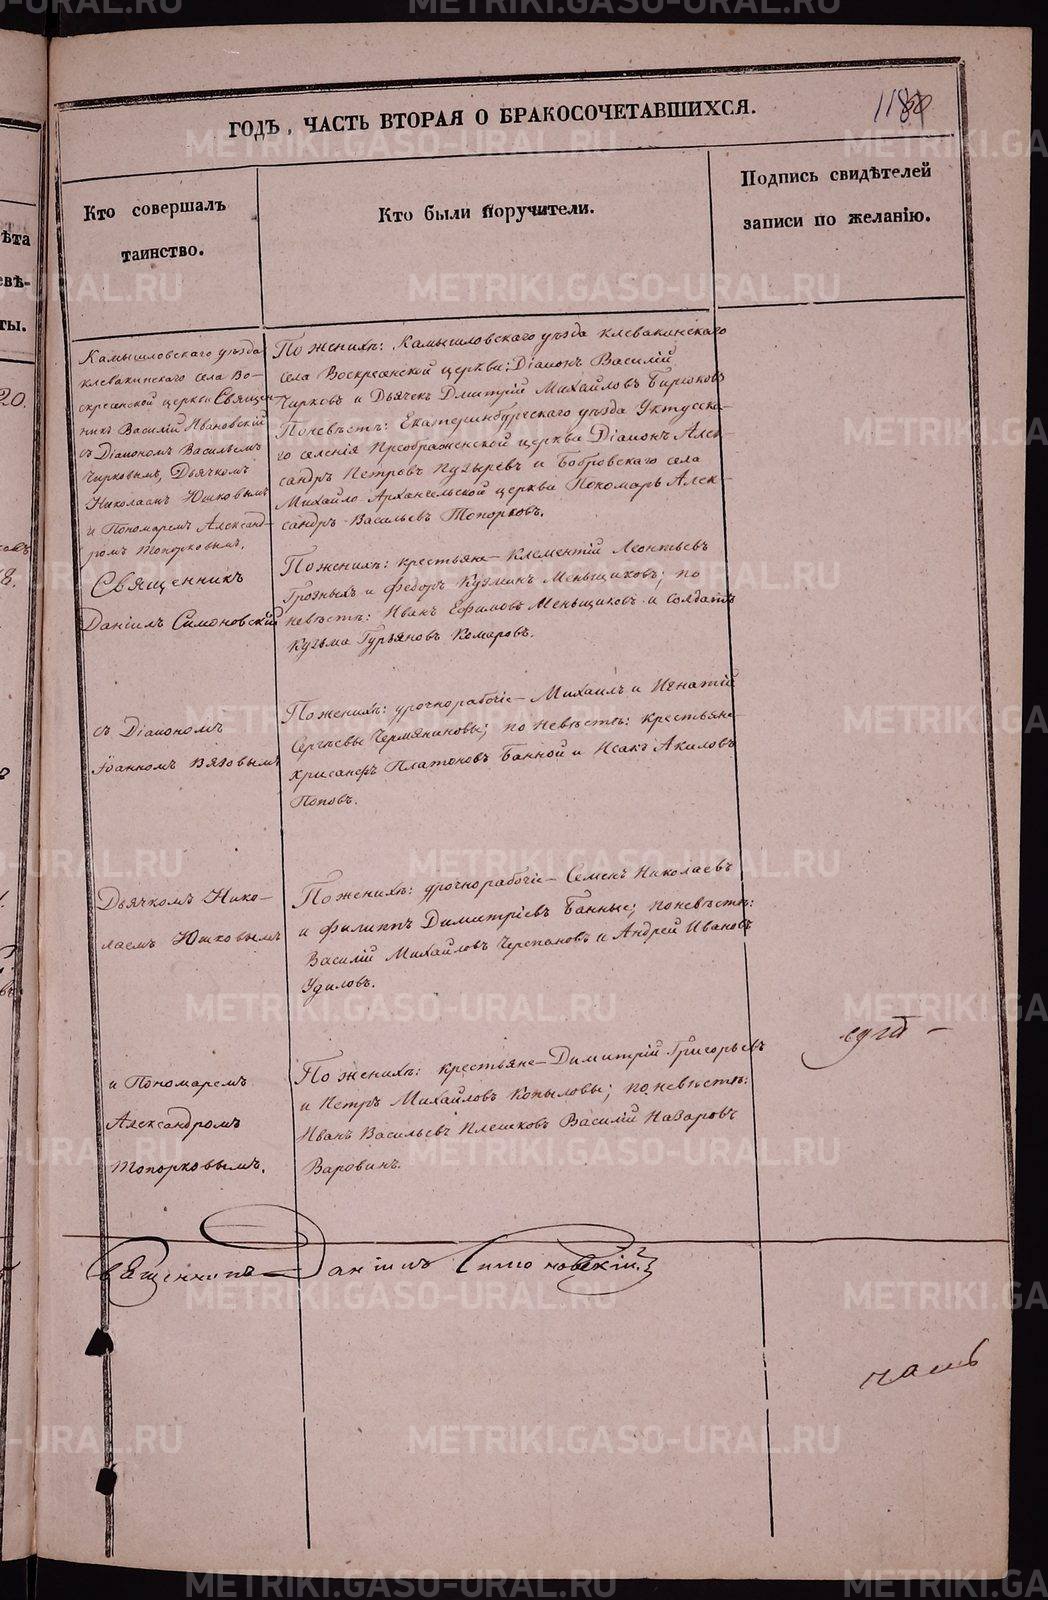 ГОДЪ, ЧАСТЬ ВТОРАЯ О БРАКОСОЧЕТАВШИХСЯ.
Кто совершалъ
таинство.
Кто были поручители.
Подпись свидѣтелей
записи по желанію.
ѣта
евѣ-
ты.
20.
Камышловскаго уѣзда
клевакинскаго села Во-
скресенской церкви Священ
никъ Василій Ивановскій
съ Діакономъ Васильемъ
Чирковымъ, Дьячкомъ
Николаемъ Юшковымъ
и Пономаремъ Александ-
ромъ Топорковымъ.
По женихѣ: Камышловскаго уѣзда клевакинскаго
села Воскресенской церкви: Діаконъ Василій
Чирковъ и Дьячекъ Дмитрій Михайловъ Бирюковъ
По невѣстѣ: Екатеринбургскаго уѣзда Уктусска-
го селенія Преображенской церкви Діаконъ Алек-
сандръ Петровъ Пузыревъ и Бобровскаго села
Михайло Архангельской церкви Пономарь Алек-
сандръ Васильевъ Топорковъ.
Священникъ
Даніилъ Симоновскій
По женихѣ: крестьяне – Клементій Леонтьевъ
Грозныхъ и Федоръ Кузминъ Меньщиковъ; по
невѣстѣ: Иванъ Ефимовъ Меньщиковъ и солдатъ
Кузьма Гурьяновъ Комаровъ.
съ Діакономъ
Іоанномъ Вязовымъ
По женихѣ: урочнорабочіе – Михаилъ и Игнатій
Сергѣевы Чермяниновы; по невѣстѣ: крестьяне –
Хрисанфъ Платоновъ Банной и Исакъ Акиловъ
Поповъ.
Дьячкомъ Нико-
лаемъ Юшковымъ
По женихѣ: урочнорабочіе – Семенъ Николаевъ
и Филиппъ Димитріевъ Банные; по невѣстѣ:
Василій Михайловъ Черепановъ и Андрей Ивановъ
Удиловъ.
и Пономаремъ
Александромъ
Топорковымъ.
По женихѣ: крестьяне – Димитрій Григорьевъ
и Петръ Михайловъ Копыловы; по невѣстѣ:
Иванъ Васильевъ Плешковъ Василій Назаровъ
Варовинъ.
Священникъ Даніилъ Симоновскій
METRIKI.GASO-URAL.RU